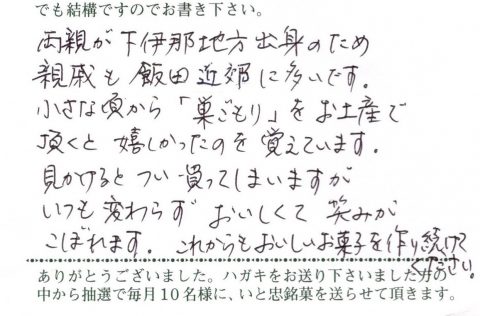 でも結構ですのでお書き下さい。
両親が下伊那地方出身のため
親戚も飯田近郊に多いです。
小さな頃から「巣ごもり」をお土産で
頂くと嬉しかったのを覚えています。
見かけるとつい買ってしまいますが
いつも変わらずおいしくて笑みが
こぼれます。これからもおいしいお菓子を作り続けて
ください。
ありがとうございました。ハガキをお送り下さいました方の
中から抽選で毎月10名様に、いと忠銘菓を送らせて頂きます。